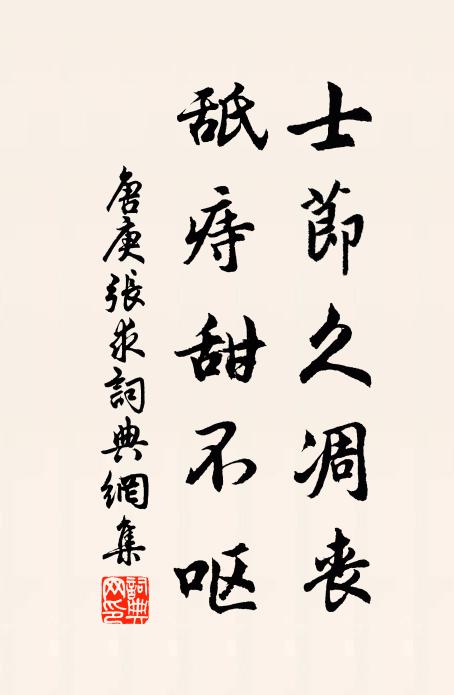 士節久凋丧
舐痔甜不呕
唐庚張求詞典網集
詞典網印